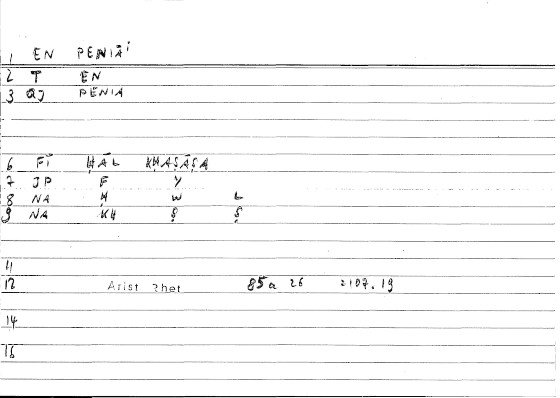 1 EN PENIĀI
2 T EN
3 QJ PENIA
6 FĪ ḤĀL KḤAṢĀṢA
7 JP F Y
8 NA Ḥ W L
9 NA KH Ṣ Ṣ
11
12 Arist Rhet 85a 26 2107.19
14
16